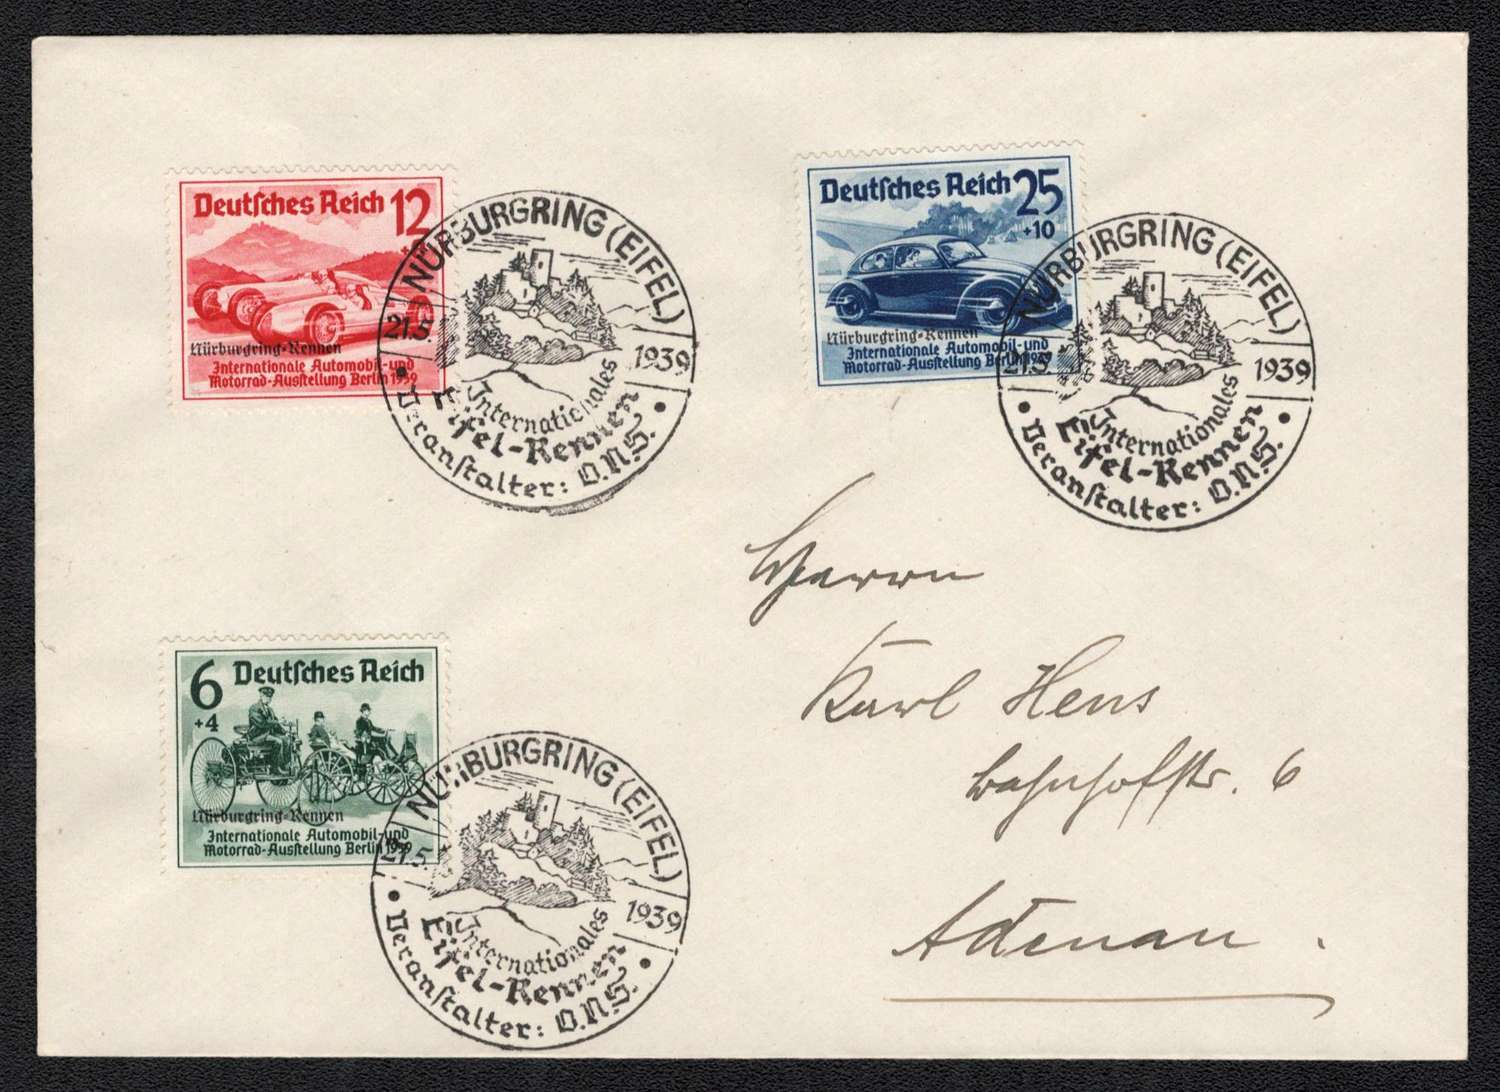 Deutſches Reich 12
Nürburgring-Rennen
Internationale Automobil-und
Motorrad-Ausſtellung Berlin 1939
NÜRBURGRING (EIFEL)
21.5. 1939
Internationales
Eifel-Rennen
Veranſtalter: O.N.S.
Deutſches Reich 25
+10
Nürburgring-Rennen
Internationale Automobil-und
Motorrad-Ausſtellung Berlin 1939
NÜRBURGRING (EIFEL)
21.5. 1939
Internationales
Eifel-Rennen
Veranſtalter: O.N.S.
Herrn
Karl Hens
Bahnhofstr. 6
Adenau.
6 Deutſches Reich
+4
Nürburgring-Rennen
Internationale Automobil-und
Motorrad-Ausſtellung Berlin 1939
NÜRBURGRING (EIFEL)
21.5. 1939
Internationales
Eifel-Rennen
Veranſtalter: O.N.S.